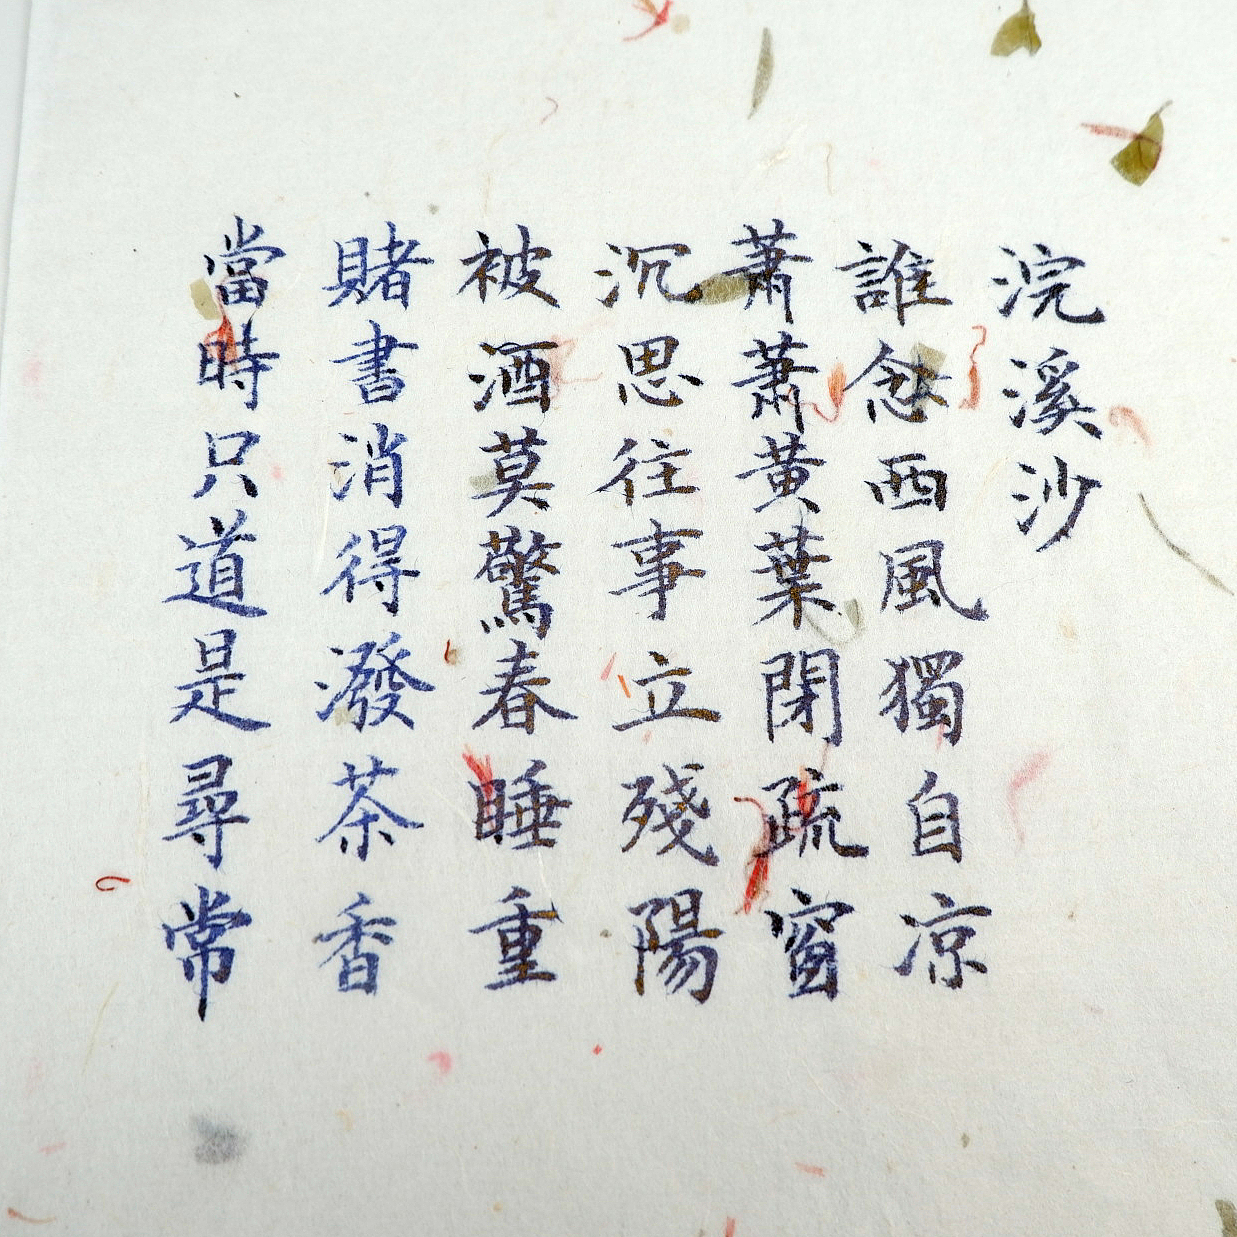 浣溪沙
誰念西風獨自凉
蕭蕭黃葉閉疏窗
沉思往事立殘陽
被酒莫驚春睡重
賭書消得潑茶香
當時只道是尋常